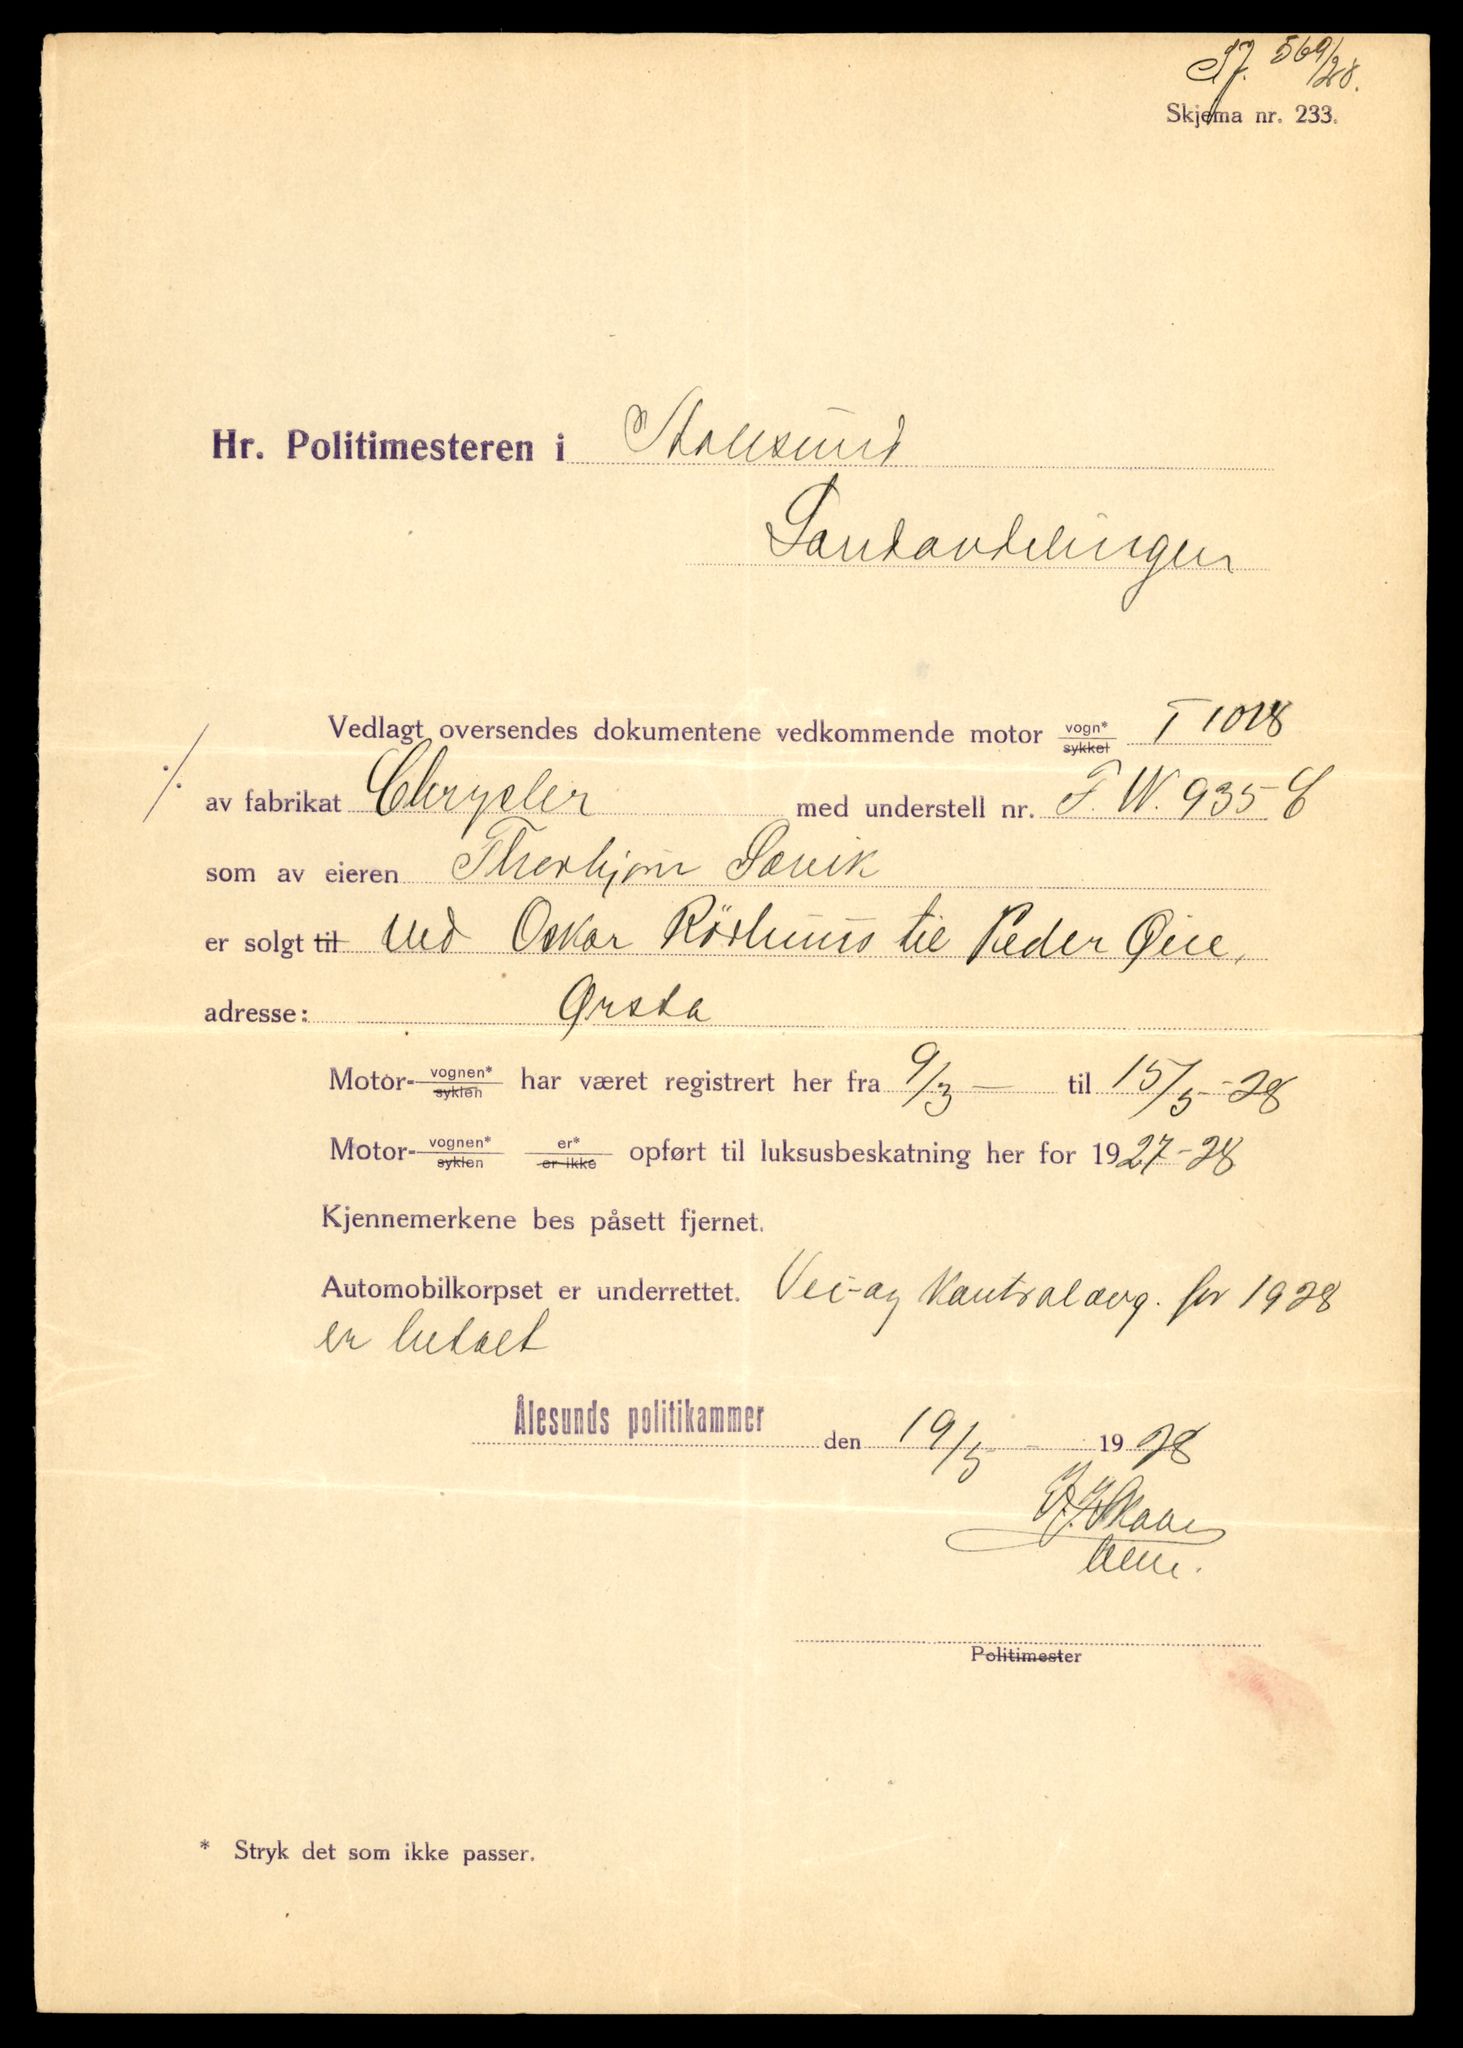 569/28.
Skjema nr. 233.
Hr. Politimesteren i Aalesund
Landavdelingen
Vedlagt oversendes dokumentene vedkommende motor vogn* sykkel T 1028
./.
av fabrikat Chrysler med understell nr. F. W. 935 C
som av eieren Thorbjørn Sævik
er solgt til ved Oskar Rörhuus til Peder Øie,
adresse: Ørsta
Motor- vognen* syklen har været registrert her fra 9/3 — til 15/5 - 28
Motor- vognen* syklen er* er ikke opført til luksusbeskatning her for 1927-28
Kjennemerkene bes påsett fjernet.
Automobilkorpset er underrettet. Vei- og kontrolavg. for 1928
er betalt
Ålesunds politikammer den 19/5 - 1928
Politimester
* Stryk det som ikke passer.